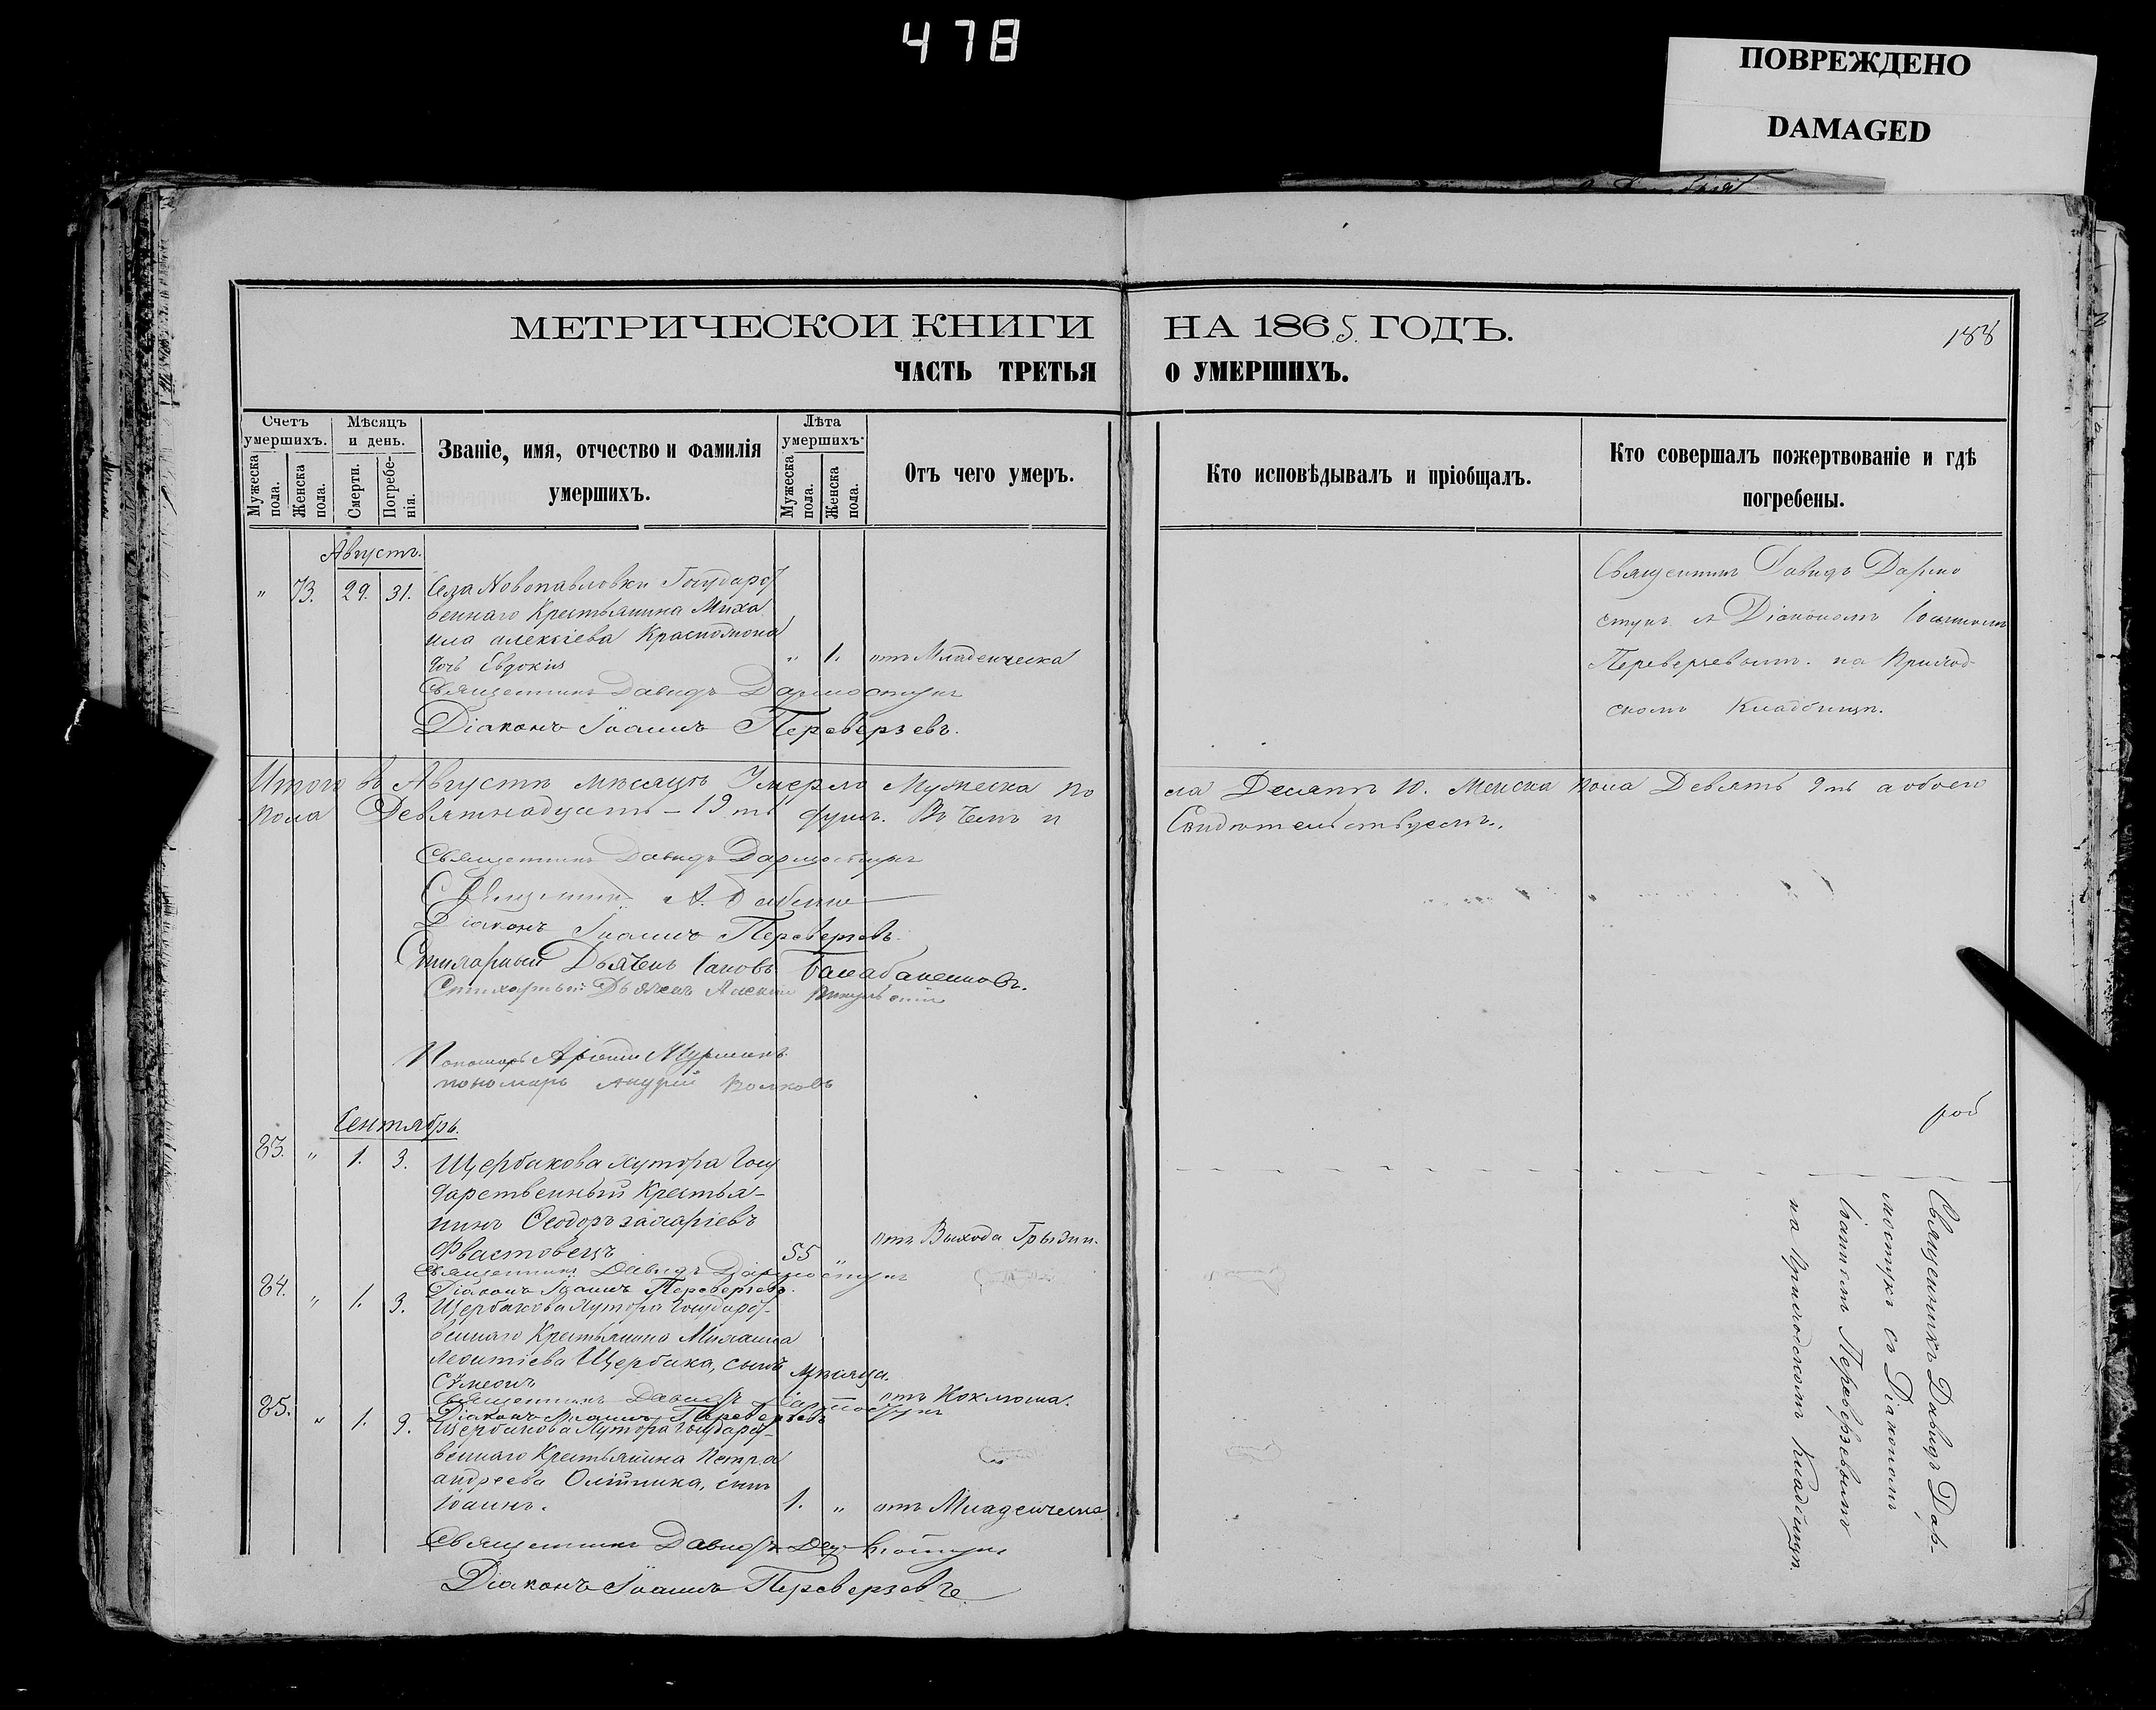 478
ПОВРЕЖДЕНО
DAMAGED
МЕТРИЧЕСКОЙ КНИГИ НА 1865 ГОДЪ.
188
ЧАСТЬ ТРЕТЬЯ О УМЕРШИХЪ.
Счетъ умершихъ.
Мужеска пола.
Женска пола.
Мѣсяцъ и день.
Смерти.
Погребенія.
Званіе, имя, отчество и фамилія
умершихъ.
Лѣта умершихъ.
Мужеска пола.
Женска пола.
Отъ чего умеръ.
Кто исповѣдывалъ и пріобщалъ.
Кто совершалъ пожертвованіе и гдѣ
погребены.
Августъ.
" 73. 29. 31. Села Новопавловки Государст
веннаго Крестьянина Миха
ила Алексіева
дочь Евдокія " 1. отъ Младенческа
Священникъ Давидъ Дармостукъ
Діаконъ Іоаннъ Переверзевъ.
Священникъ Давидъ Дармо
стукъ съ Діакономъ Іоанномъ
Переверзевымъ. на Приход
скомъ Кладбищѣ.
Итого въ Августѣ мѣсяцѣ Умерло Мужеска по
ла Десять 10. Женска пола Девять 9ть а обоего
пола Девятнадцать – 19ть душъ. Въ чемъ и
Свидѣтельствуемъ.
Священникъ Давидъ Дармостукъ
Священникъ А.
Діаконъ Іоаннъ Переверзевъ.
Стихарный Дьячекъ Іаковъ
Стихарный Дьячекъ Алексій
Пономарь
пономарь Андрей Волковъ
Сентябрь.
83. " 1. 3. Щербакова хутора Госу
дарственный Крестья-
нинъ Ѳеодоръ Захаріевъ
Хвастовецъ 55 " отъ Выхода Грызи.
Священникъ Давидъ Дармостукъ
Діаконъ Іоаннъ Переверзевъ.
84. " 1. 3. Щербакова Хутора Государст-
веннаго Крестьянина Михаила
Леонтіева Щербака, сынъ
Сѵмеонъ мѣсяца. отъ Коклюша.
Священникъ Давидъ Дармостукъ
Діаконъ Іоаннъ Переверзевъ
85. " 1. 3. Щербакова Хутора Государст-
веннаго Крестьянина Петра
Андреева Олійника, сынъ
Іоаннъ. 1. " отъ Младенческа
Священникъ Давидъ Дармостукъ
Діаконъ Іоаннъ Переверзевъ
Священникъ Давидъ Дар-
мостукъ съ Діакономъ
Іоанномъ Переверзевымъ
на Приходскомъ Кладбищѣ.